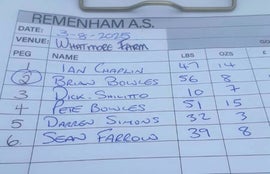 REMENHAM A.S.
DATE: 3-8-2025
VENUE: WHITMORE FARM
PEG NAME LBS OZS
1 IAN CHAPLIN 47 14
2 BRIAN BOWLES 56 8
3 DICK SHILITTO 10 7
4 PETE BOWLES 51 15
5 DARREN SIMONS 32 3
6. SEAN FARROW 39 8